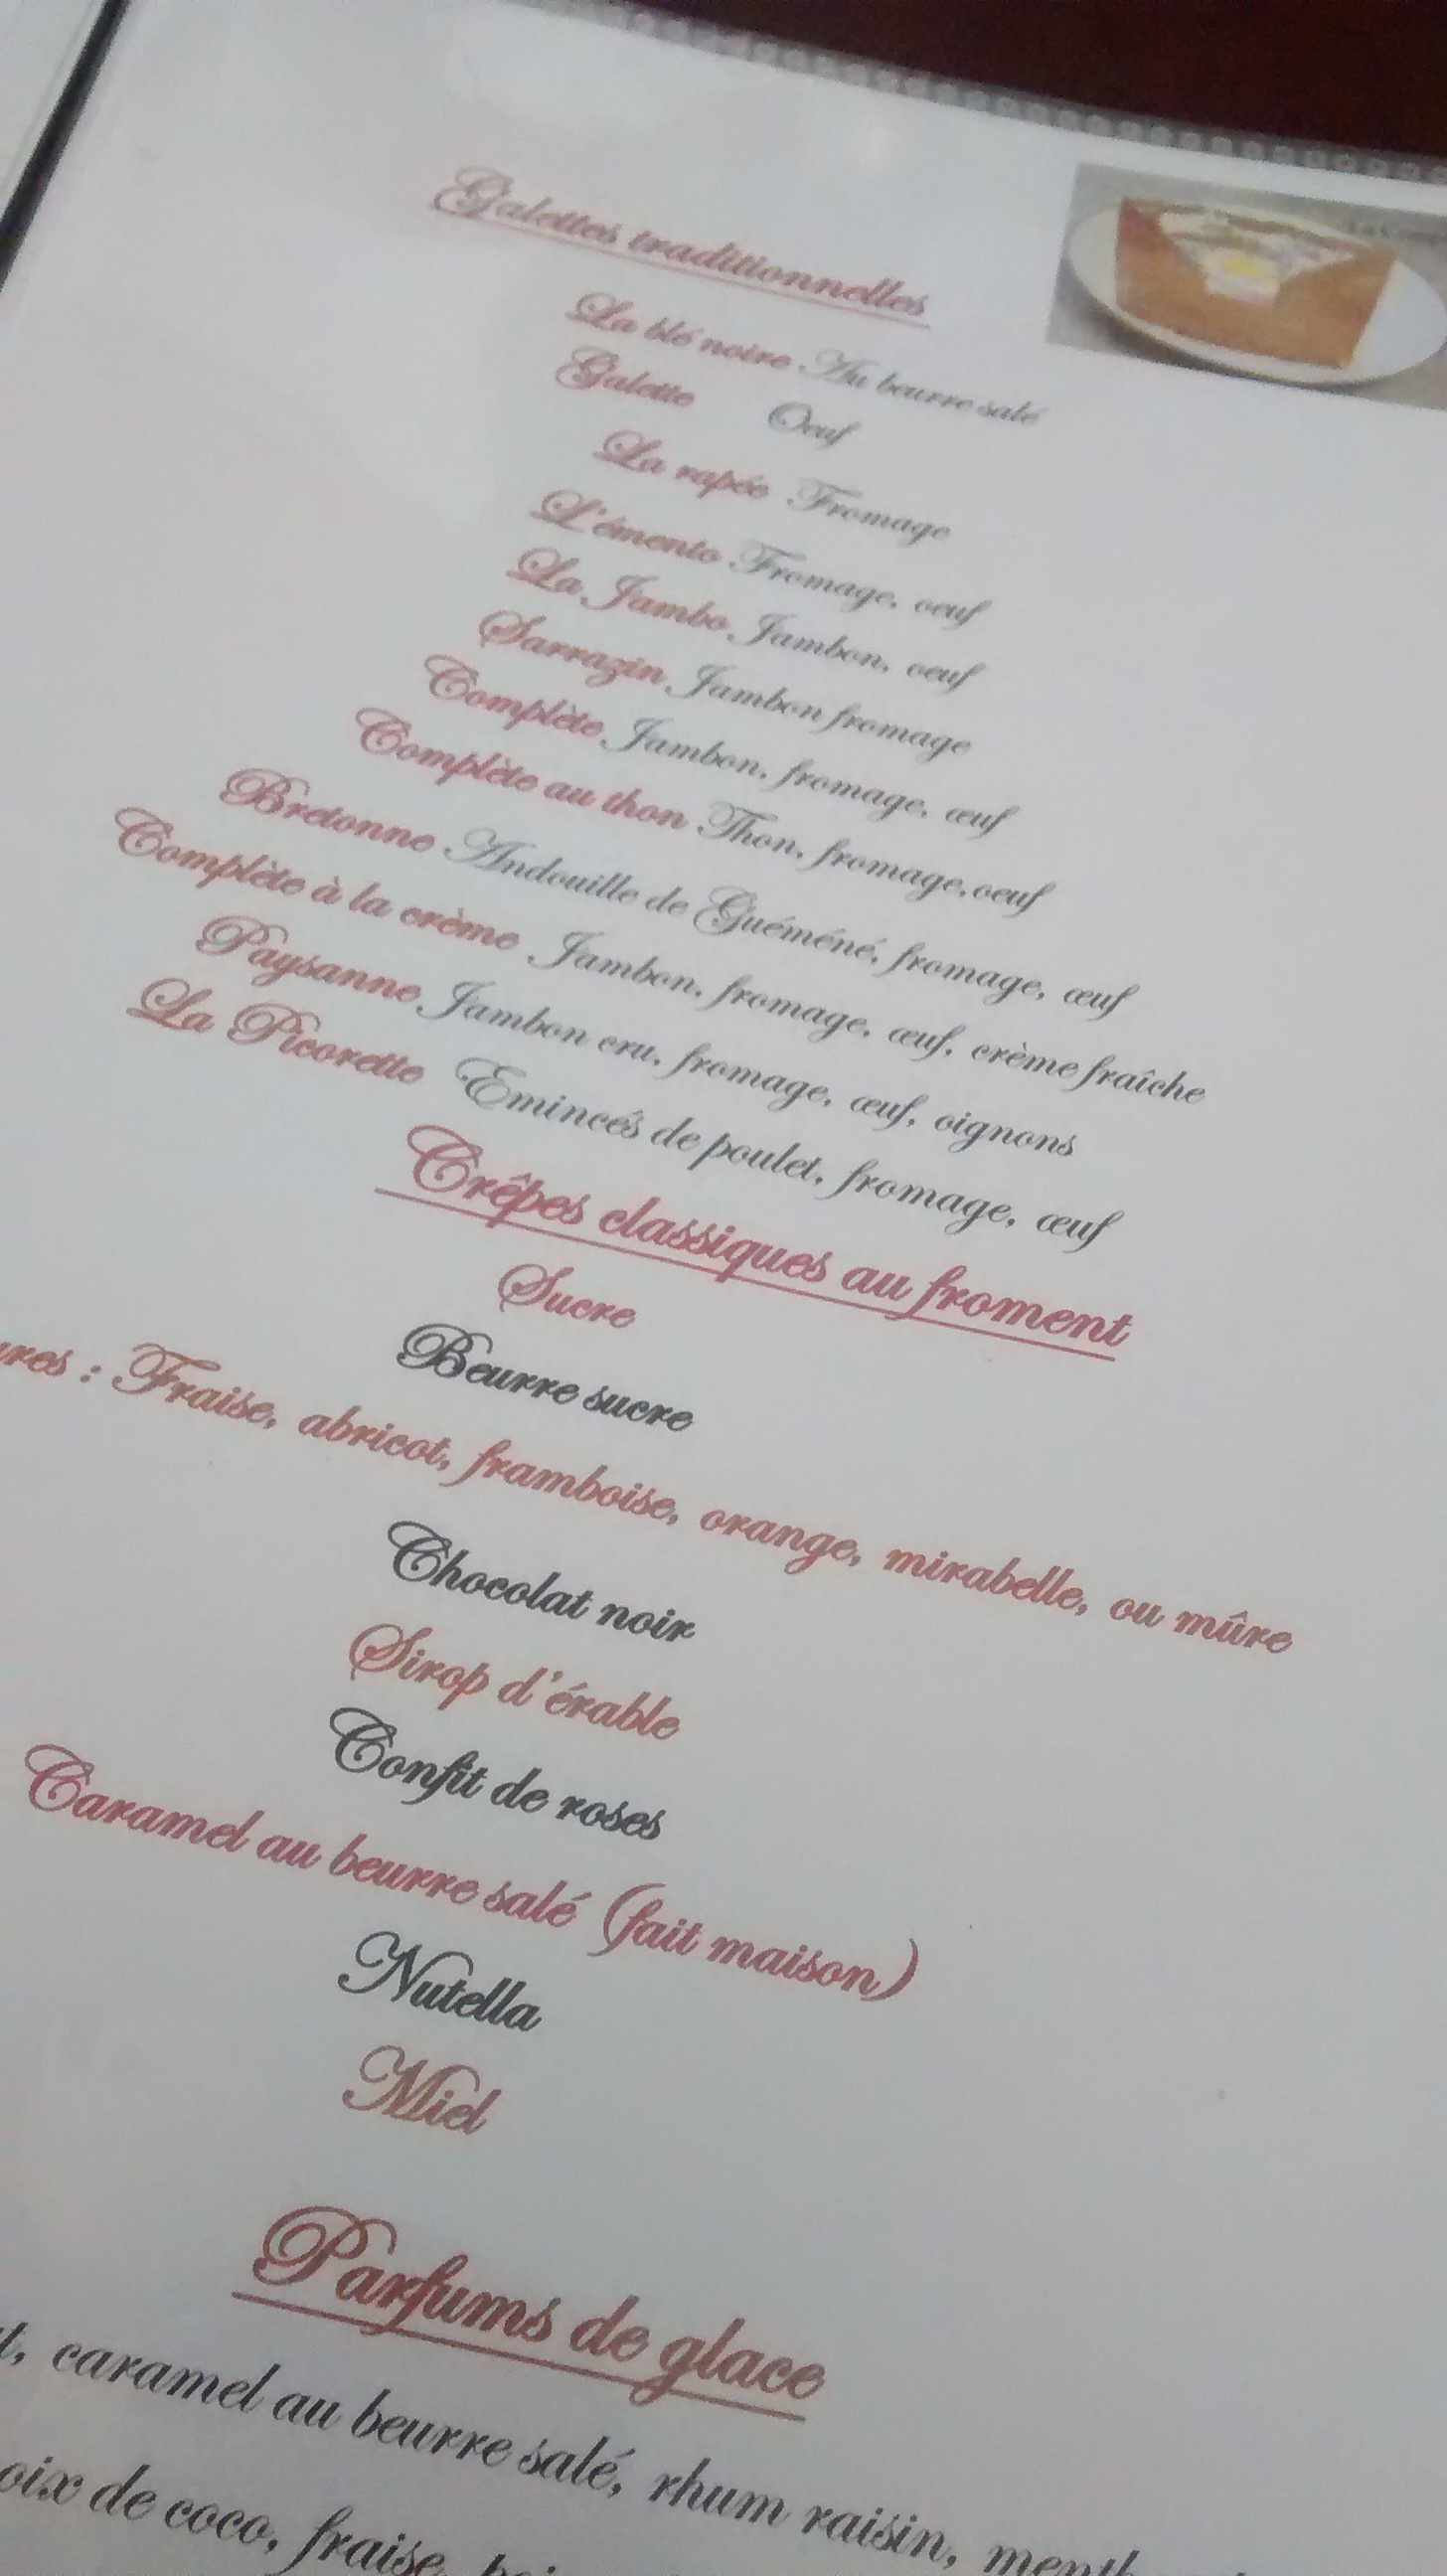 Galettes traditionnelles
La blé noire Au beurre salé
Galette Oeuf
La rapée Fromage
L'émento Fromage, oeuf
La Jambo Jambon, oeuf
Sarrazin Jambon fromage
Complète Jambon, fromage, œuf
Complète au thon Thon, fromage,oeuf
Bretonne Andouille de Guéméné, fromage, œuf
Complète à la crème Jambon, fromage, œuf, crème fraîche
Paysanne Jambon cru, fromage, œuf, oignons
La Picorette Emincés de poulet, fromage, œuf
Crêpes classiques au froment
Sucre
Beurre sucre
ures : Fraise, abricot, framboise, orange, mirabelle, ou mûre
Chocolat noir
Sirop d'érable
Confit de roses
Caramel au beurre salé (fait maison)
Nutella
Miel
Parfums de glace
t, caramel au beurre salé, rhum raisin,
oix de coco, fraise,